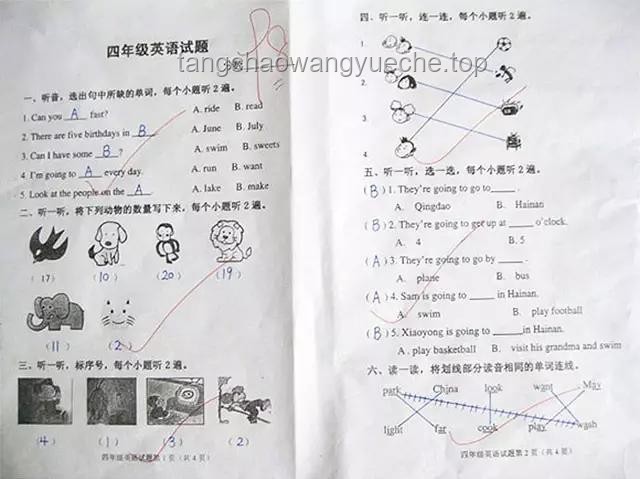 四年级英语试题
一、听音，选出句中所缺的单词，每个小题听2遍。
1. Can you A fast? A. ride B. read
2. There are five birthdays in B. A. June B. July
3. Can I have some B? A. swim B. sweets
4. I'm going to A every day. A. run B. want
5. Look at the people on the A. A. lake B. make
二、听一听，将下列动物的数量写下来，每个小题听2遍。
(17) (10) (20) (19)
(11) (2)
三、听一听，标序号，每个小题听2遍。
(4) (1) (3) (2)
四年级英语试题第1页（共4页）
四、听一听，连一连，每个小题听2遍。
1.
2.
3.
4.
五、听一听，选一选，每个小题听2遍。
(B) 1. They're going to go to ____.
A. Qingdao B. Hainan
(B) 2. They're going to get up at ____ o'clock.
A. 4 B. 5
(A) 3. They're going to go by ____.
A. plane B. bus
(A) 4. Sam is going to ____ in Hainan.
A. swim B. play football
(B) 5. Xiaoyong is going to ____ in Hainan.
A. play basketball B. visit his grandma and swim
六、读一读，将划线部分读音相同的单词连线。
park China look want May
light far cook play wash
四年级英语试题第2页（共4页）
tangshaowangyueche.top